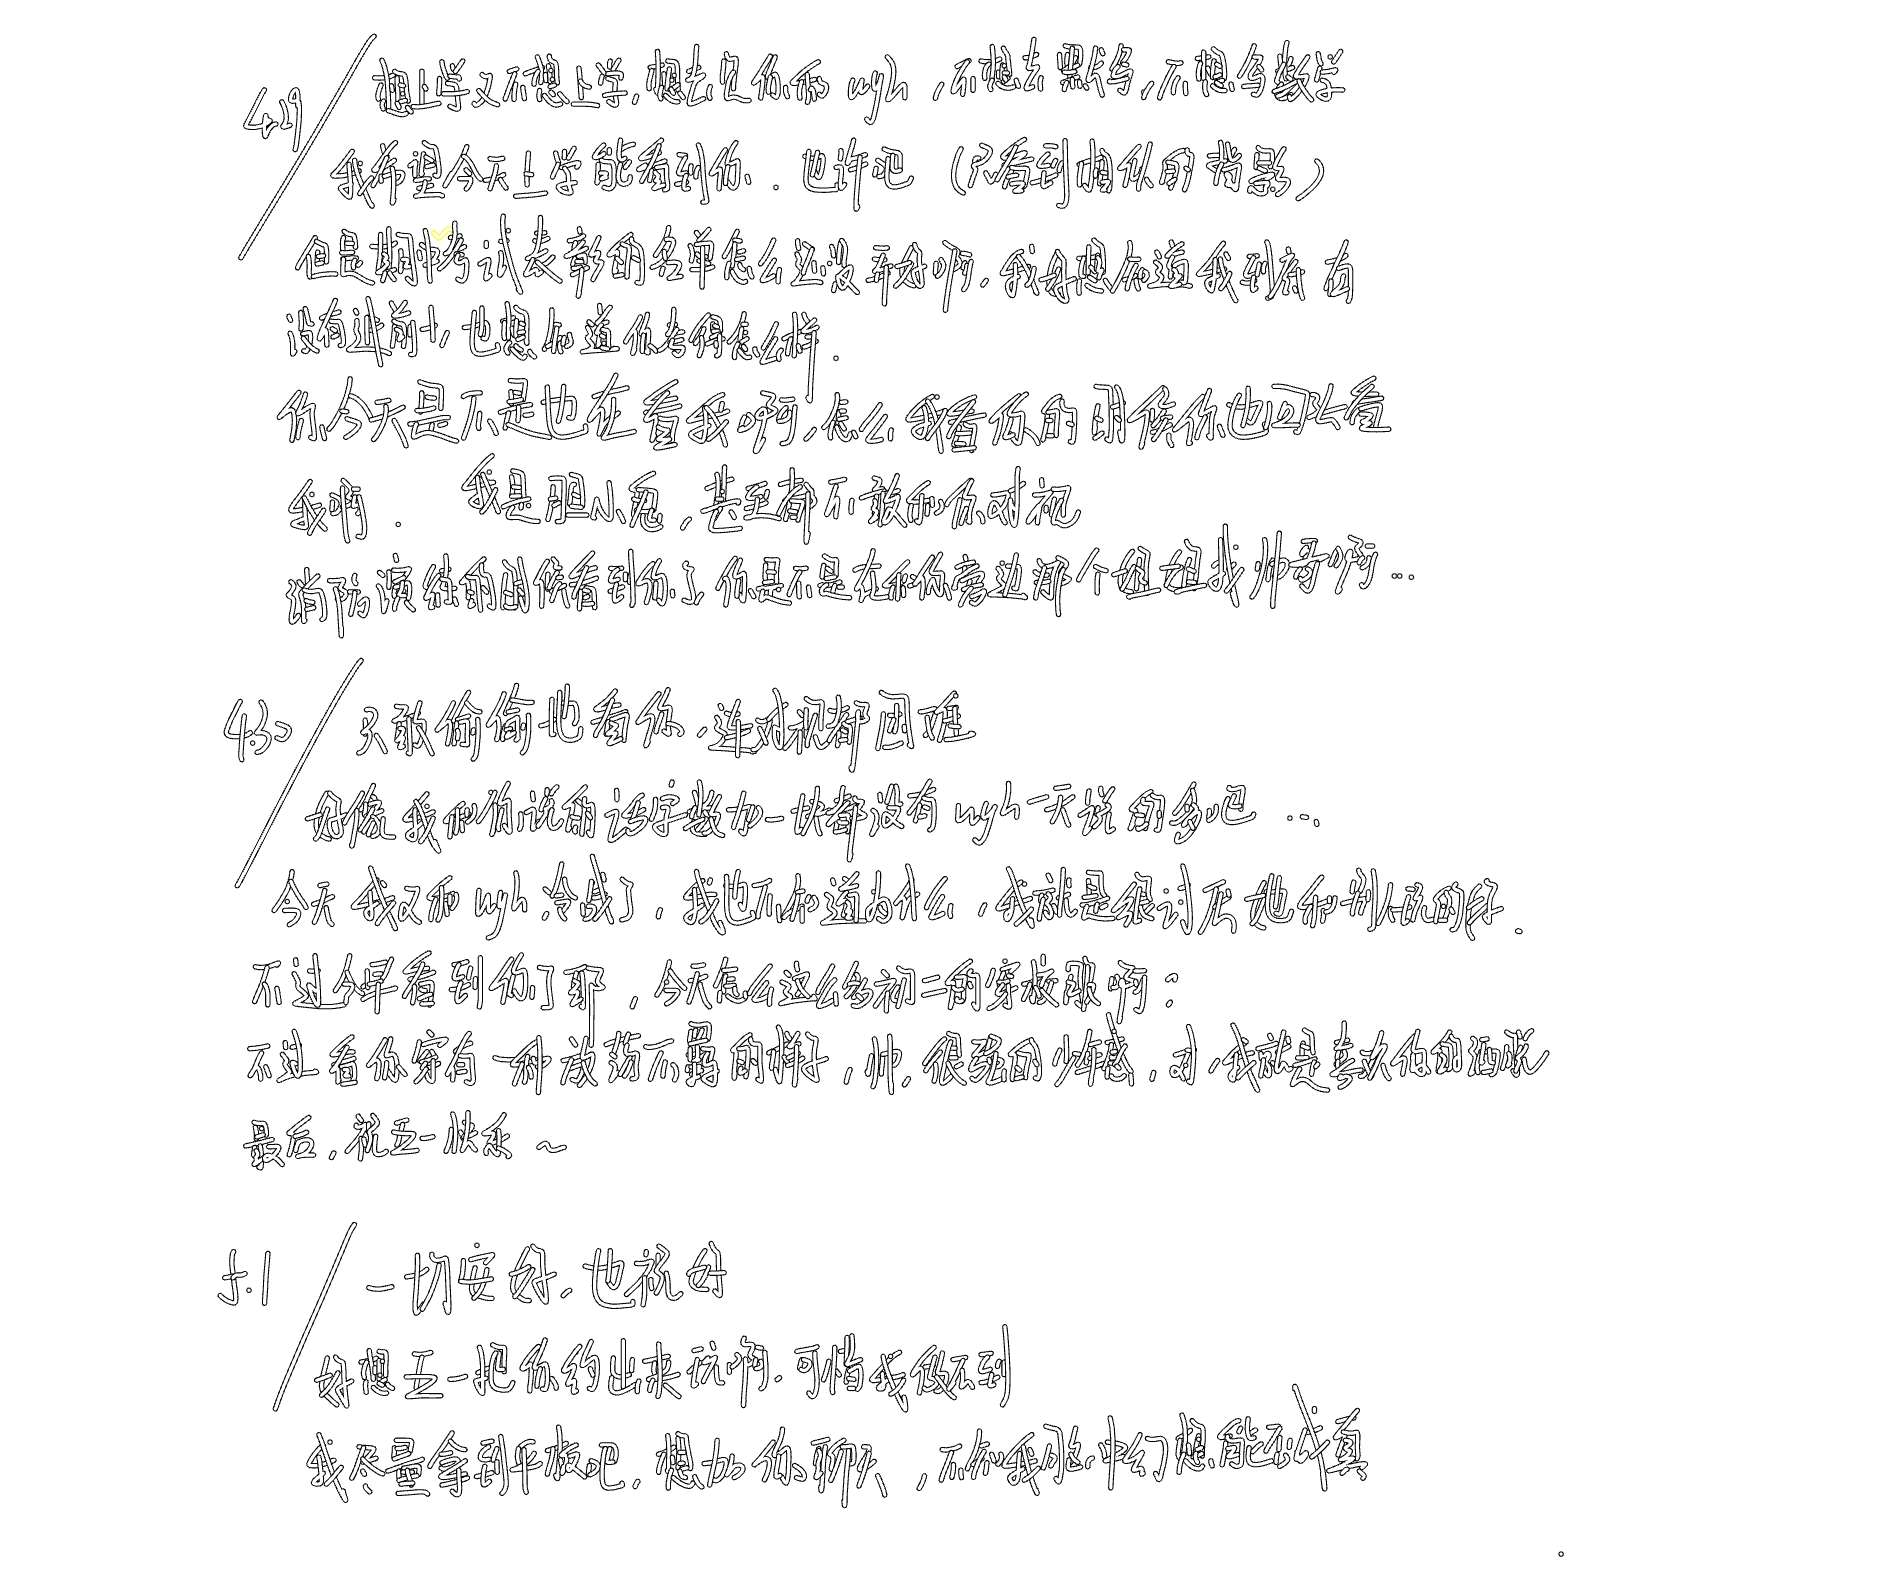 4.29 想上学又不想上学,想去见你和wyh,不想去默写,不想写数学
我希望今天上学能看到你.也许吧(只看到相似的背影)
但是期中考试表彰的名单怎么还没弄好啊.我好想知道我到底有
没有进前十,也想知道你考得怎么样.
你今天是不是也在看我啊,怎么我看你的时候你也回头看
我啊. 我是胆小鬼,甚至都不敢和你对视
消防演练的时候看到你了,你是不是在和你旁边那个姐姐找帅哥啊...
4.30 只敢偷偷地看你,连对视都困难
好像我和你说的话字数加一块都没有wyh一天说的多吧...
今天我又和wyh冷战了,我也不知道为什么,我就是很讨厌她和别人玩的好.
不过今早看到你了耶,今天怎么这么多初二的穿校服啊?
不过看你穿有一种放荡不羁的样子,帅,很强的少年感,对,我就是喜欢你的洒脱
最后,祝五一快乐~
5.1 一切安好,也祝好
好想五一把你约出来玩啊.可惜我做不到
我尽量拿到平板吧,想加你聊天,不知我脑中幻想能否成真
。